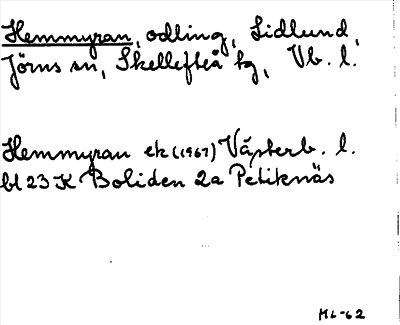 Hemmyran, odling, Lidlund,
Jörns sn, Skellefteå tg, Vb. l.
Hemmyran ek (1967) Västerb. l.
bl 23 K Boliden 2a Petiknäs